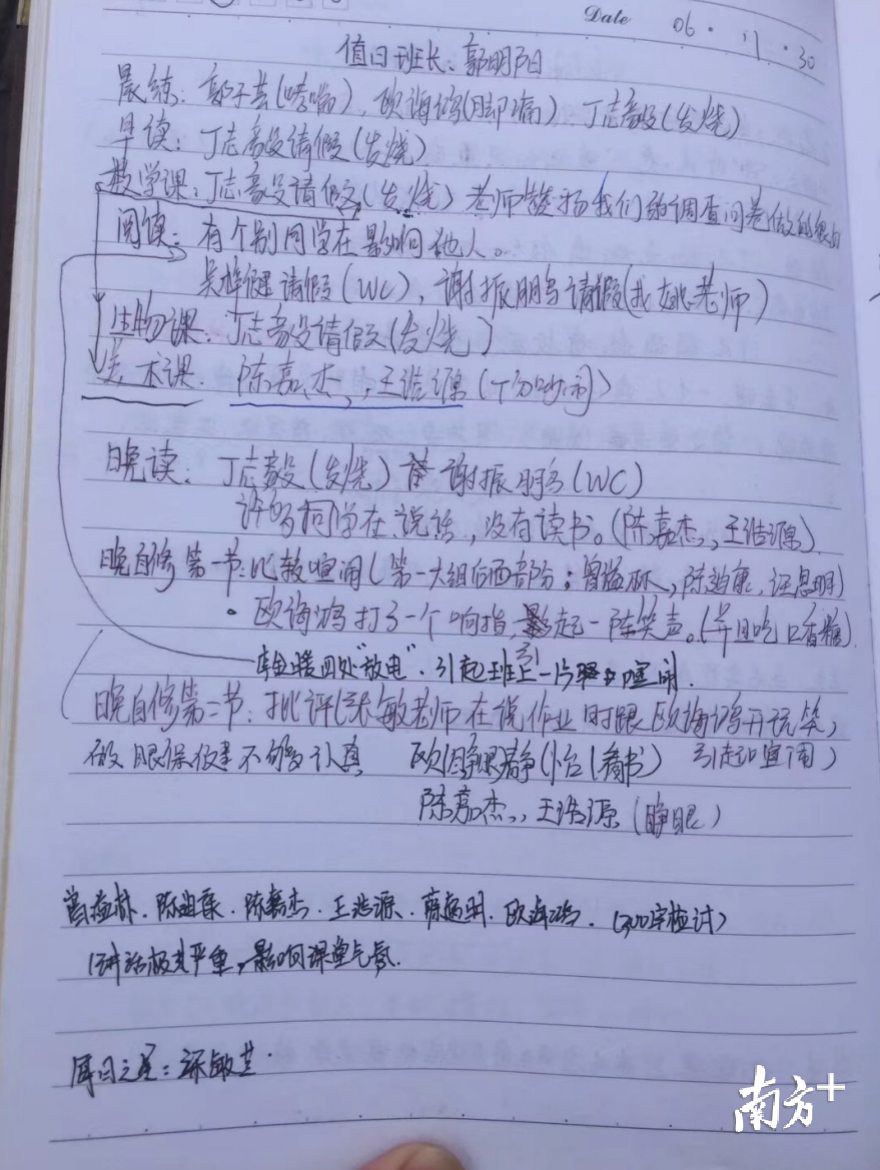 Date 06.11.30
值日班长：郭明阳
晨练：郭子芸(哮喘)，欧海鸿(脚痛) 丁志毅(发烧)
早读：丁志毅请假(发烧)
数学课：丁志毅请假(发烧) 老师赞扬我们的调查问卷做的很好
阅读：有个别同学在影响他人。
吴梓健请假(WC)，谢振鹏请假(找姚老师)
生物课：丁志毅请假(发烧)
美术课：陈嘉杰，王浩源(十分吵闹)
晚读：丁志毅(发烧) 谢振鹏(WC)
许多同学在说话，没有读书。(陈嘉杰，王浩源)
晚自修第一节：比较喧闹(第一大组后面部分；曾益林，陈迪康，汪思明)
·欧海鸿打了一个响指，引起一阵笑声。(并且吃口香糖)
四处"放电"．引起班上一片喧闹．
晚自修第二节：批评(敏老师在说作业时跟欧海鸿开玩笑，
做眼保健不够认真 欧静(怡看书) 引起喧闹)
陈嘉杰，王浩源(睁眼)
曾益林．陈迪康．陈嘉杰．王浩源．欧海鸿．(300字检讨)
(讲话极其严重，影响课堂气氛．
每日之星：梁敏芝．
南方+